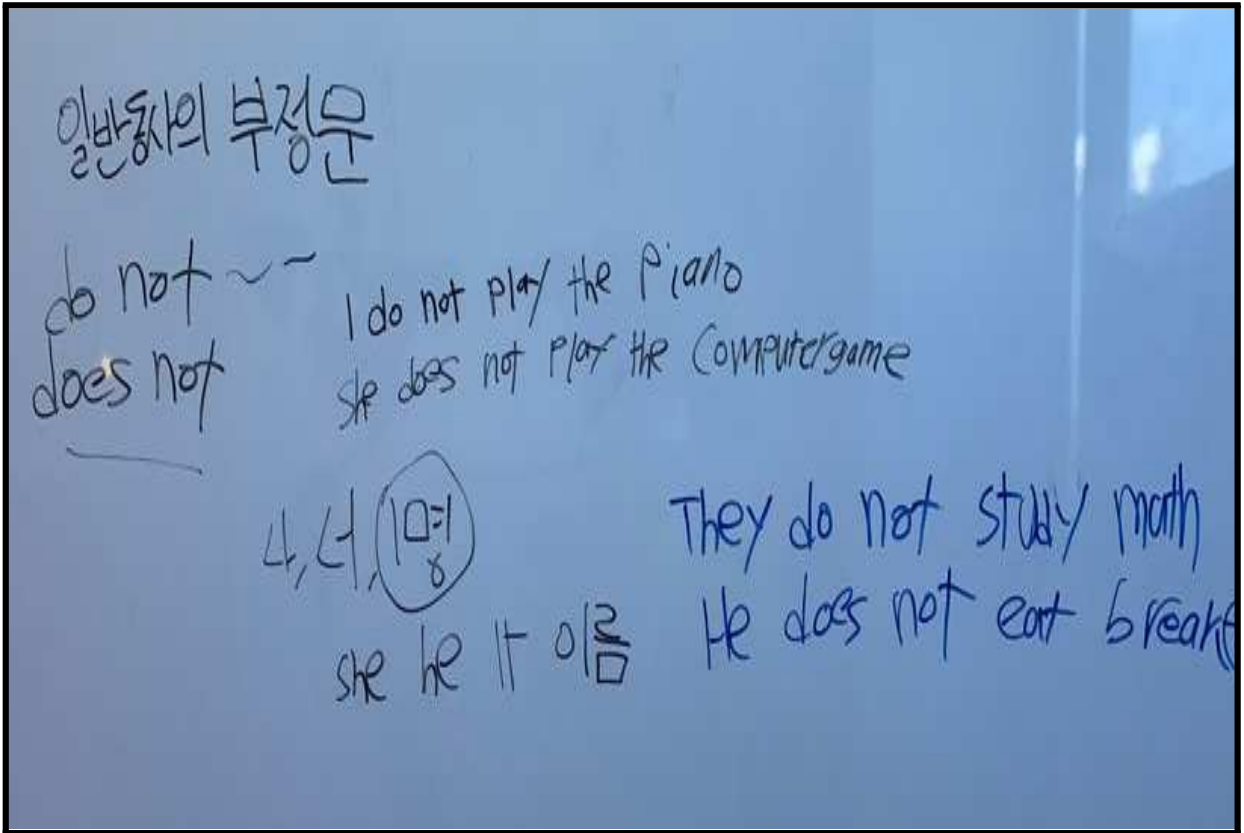 일반동사의 부정문
do not ~ -
does not
I do not play the Piano
she does not play the Computergame
나, 너, 1명
she he it 이름
They do not study math
He does not eat